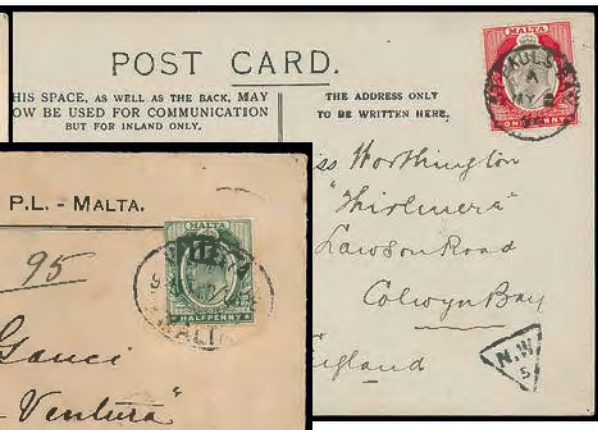 POST CARD.
HIS SPACE, AS WELL AS THE BACK, MAY
OW BE USED FOR COMMUNICATION
BUT FOR INLAND ONLY.
THE ADDRESS ONLY
TO BE WRITTEN HERE.
MALTA
ONE PENNY
PAULS
A
MY
ss Worthington
"Thirlmere"
Lawson Road
Colwyn Bay
England
N.W
5
P.L. - MALTA.
95
MALTA
HALFPENNY
Gauci
- Ventura"